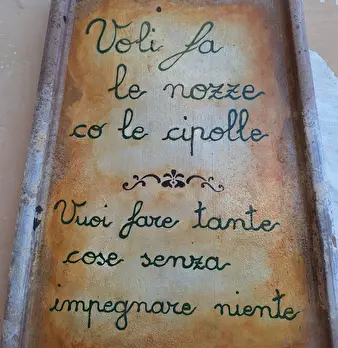 Voli fa
le nozze
co le cipolle
Vuoi fare tante
cose senza
impegnare niente